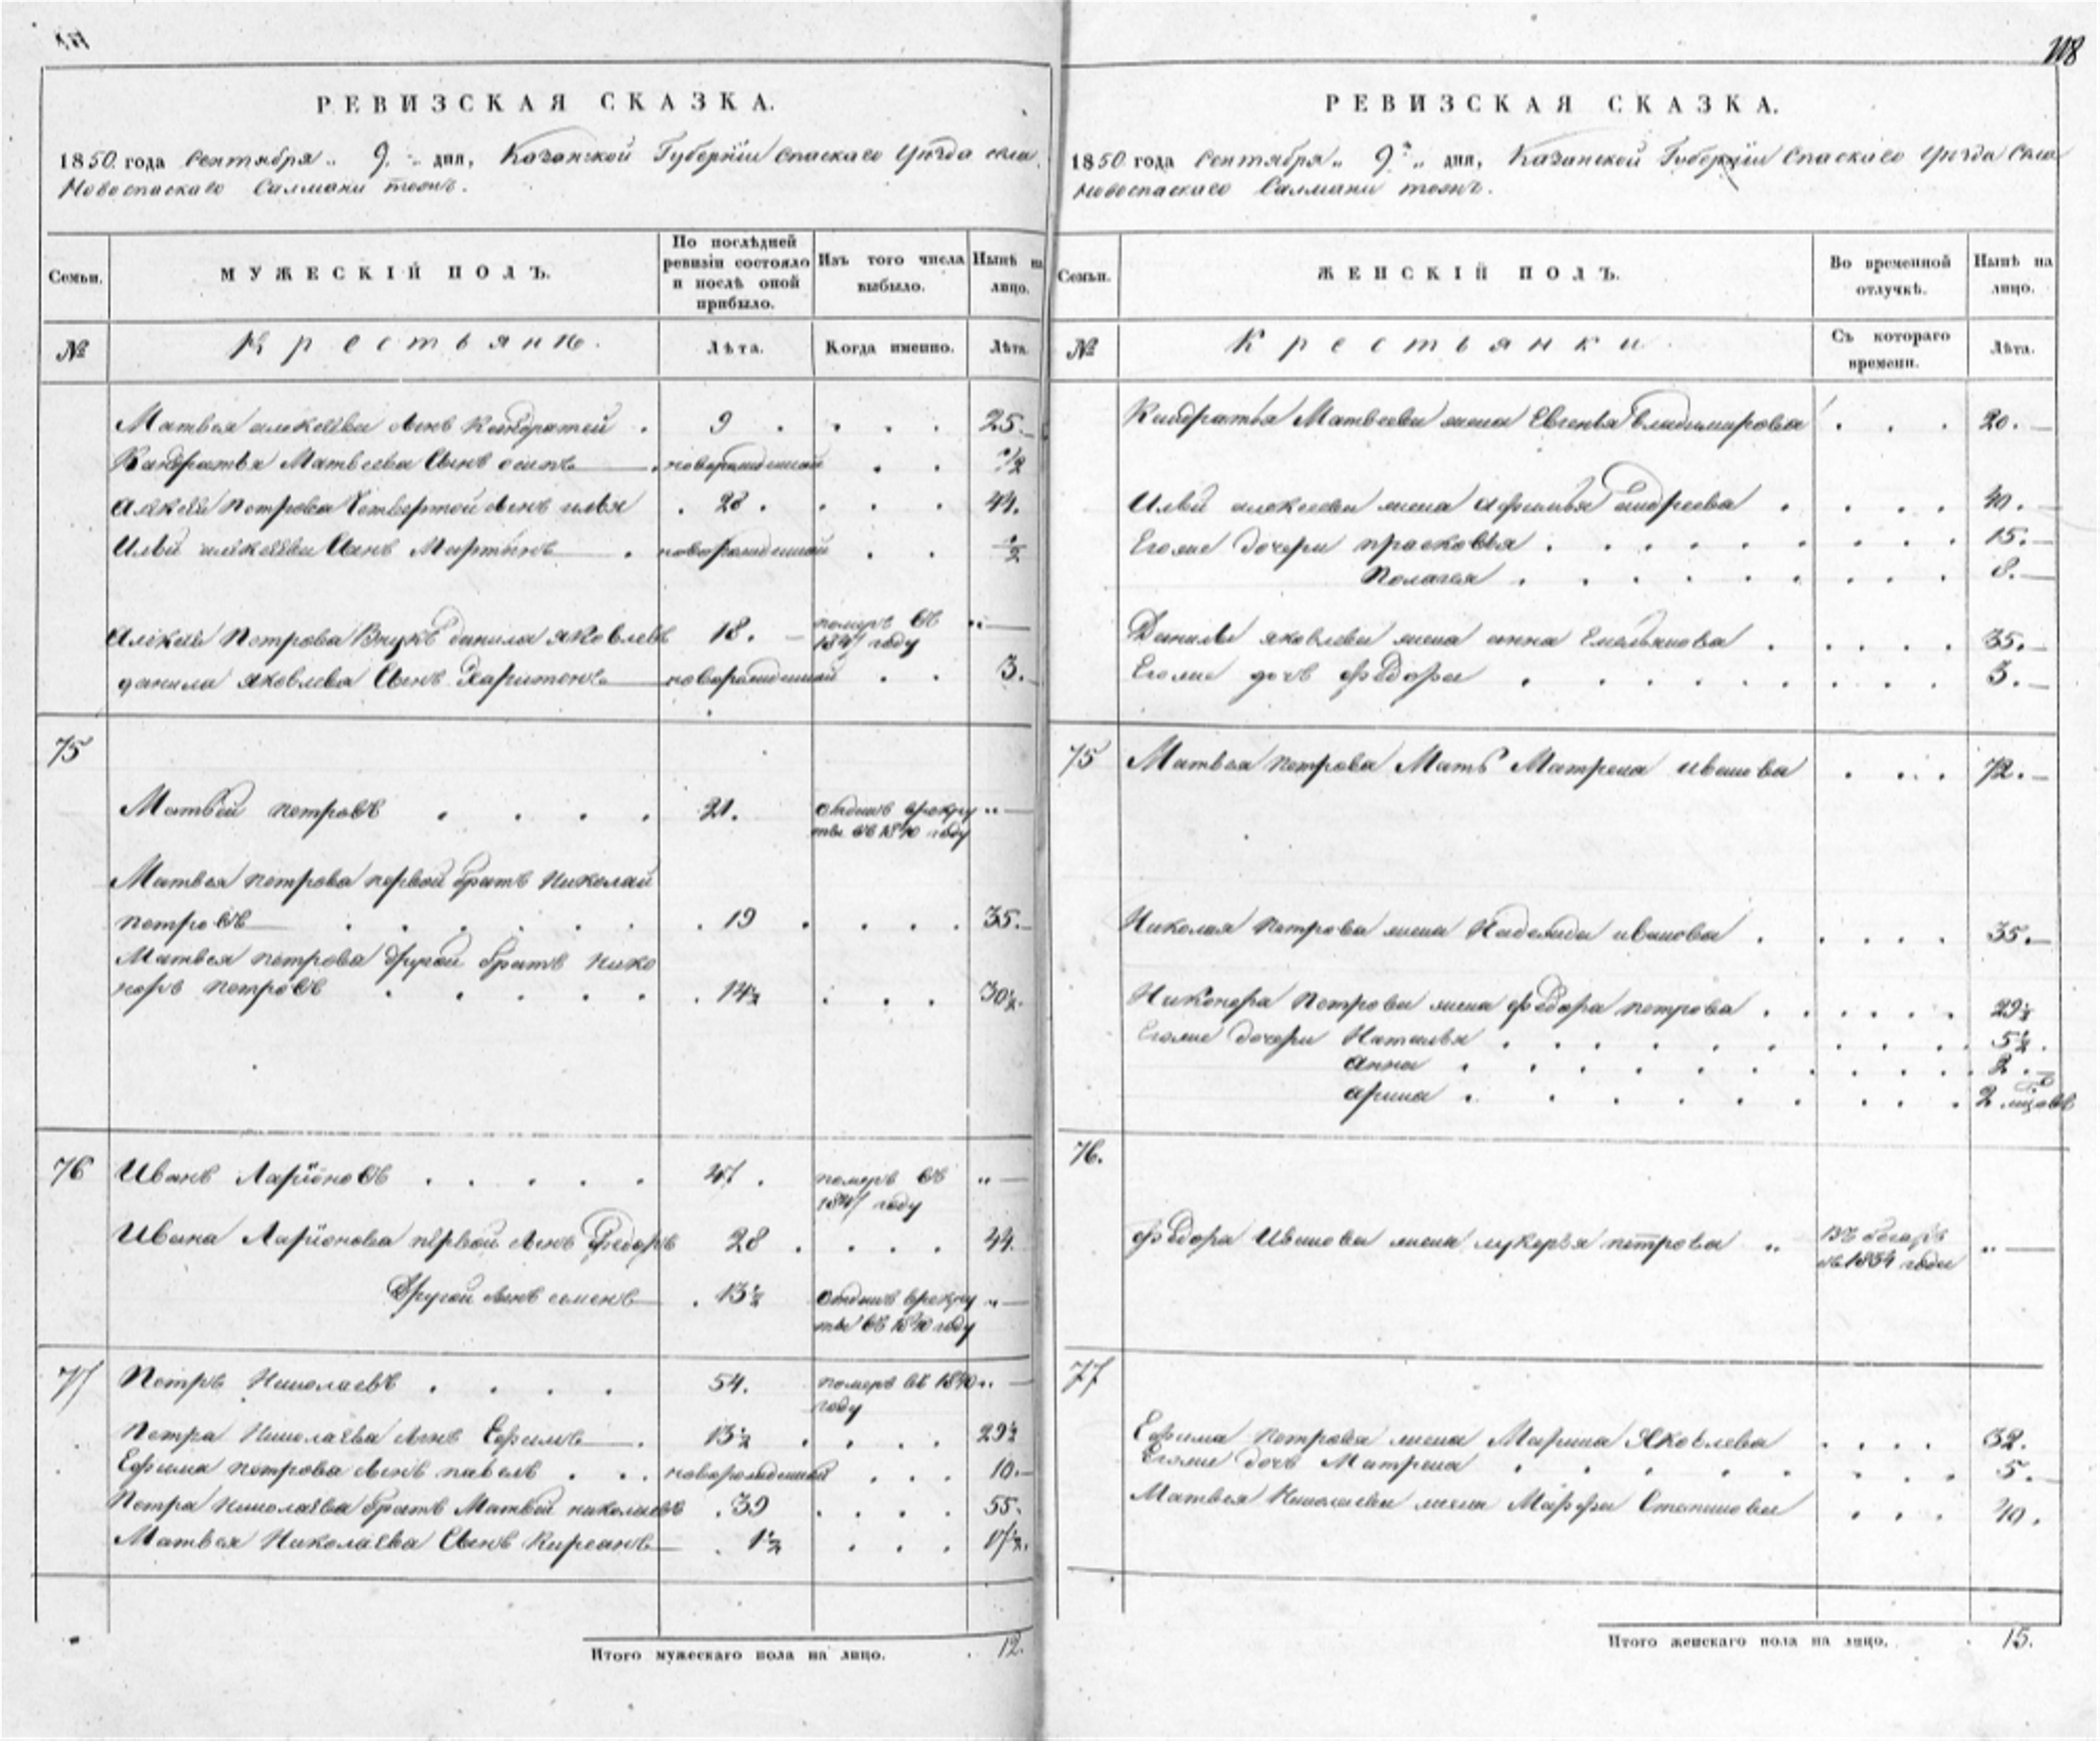 118
РЕВИЗСКАЯ СКАЗКА.
1850 года Сентября 9 дня, Казанской Губернiи Спаскаго Уѣзда села
Новоспаскаго Салманы тожъ.
Семьи.
МУЖЕСКIЙ ПОЛЪ.
По послѣдней ревизiи состояло и послѣ оной прибыло.
Изъ того числа выбыло.
Нынѣ на лицо.
№
Крестьянѣ.
Лѣта.
Когда именно.
Лѣта.
Матвея алексѣева сынъ Кондратей . 9 . . . . 25.
Кандратья Матвеева Сынъ осипъ . новорожденной . . 1/2
Алѣксѣя Петрова Четвертой сынъ илья . 28 . . . . 44.
Ильи алѣксѣева Сынъ Мартынъ . новорожденной . . 1/2
Алѣксѣя Петрова Внукъ данила яковлевъ 18. померъ въ 1847 году "
данила яковлева Сынъ Харитонъ новорожденной . . 3.
75
Матвей петровъ . . . . 21. отданъ врекру
ты въ 1840 году "
Матвея петрова первой братъ Николай
петровъ . . . . . 19 . . . . 35.
Матвея петрова другой братъ Нико
норъ петровъ . . . . . 14½ . . . 30½.
76 Иванъ Ларiоновъ . . . . . 47 . померъ въ
1847 году "
Ивана Ларiонова первой сынъ Федоръ 28 . . . . 44.
Другой сынъ семенъ . 13½ отданъ врекру "
ты въ 1840 году
77 Петръ Николаевъ . . . . 54. померъ въ 1840 "
году
Петра Николаева сынъ Ефимъ . 13½ . . . . 29½
Ефима петрова сынъ павелъ . . . новорожденной . . . 10.
Петра николаева братъ Матвей николаевъ . 39 . . . . 55.
Матвея Николаева Сынъ Кирсанъ . 1½ . . . 17½.
Итого мужескаго пола на лицо. . 12.
РЕВИЗСКАЯ СКАЗКА.
1850 года Сентября 9 дня, Казанской Губернiи Спаскаго Уѣзда Села
Новоспаскаго Салманы тожъ.
Семьи.
ЖЕНСКIЙ ПОЛЪ.
Во временной отлучкѣ.
Нынѣ на лицо.
№
Крестьянки.
Съ котораго времени.
Лѣта.
Кандратья Матвеева жена Евгенья владимирова . . . 20.
Ильи алексеева жена Афимья андреева . . . . . 40.
Егоже дочери прасковья . . . . . . . . . 15.
Полагея . . . . . . . . . 8.
Данилы яковлева жена анна Емельянова . . . . . 35.
Егоже дочь фѣдора . . . . . . . . . 3.
75 Матвея петрова Мать Матрена иванова . . . 72.
Николая петрова жена Надежда иванова . . . . . 35.
Никонора Петрова жена фѣдора петрова . . . . . . 29½
Егоже дочери Наталья . . . . . . . . . 5½.
анна . . . . . . . . . . 2.
арина . . . . . . . . . 2
76.
фѣдора Иванова жена лукерья петрова " въ бегахъ
съ 1834 года "
77
Ефима петрова жена Марина Яковлева . . . . 32.
Егоже дочь Матрена . . . . . . . . 5.
Матвея Николаева жена Марфа Степанова . . . 40.
Итого женскаго пола на лицо. . 15.